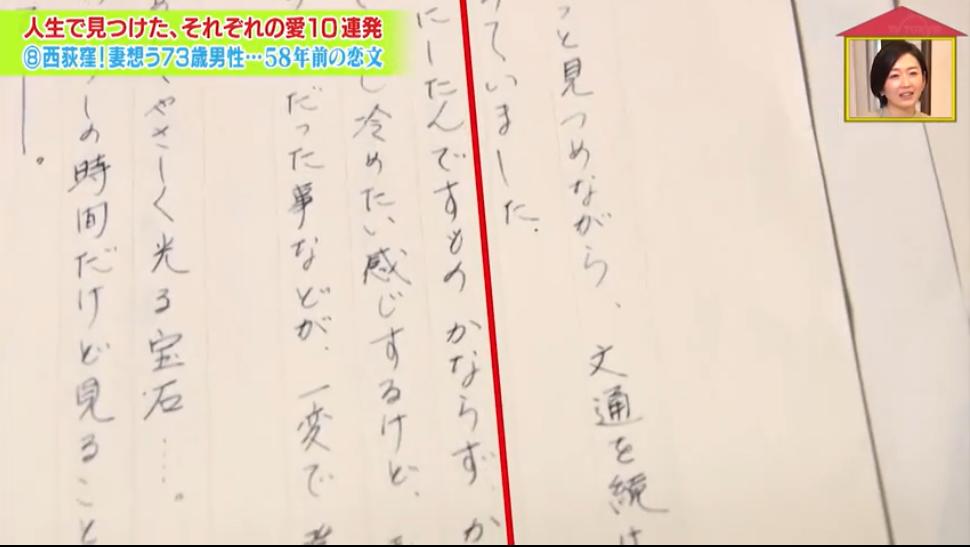 人生で見つけた、それぞれの愛10連発
⑧西荻窪!妻想う73歳男性…58年前の恋文
TV TOKYO
っと見つめながら、文通を続け
ていました.
にしたんですもの かならず、か
し冷めたい感じするけど、
だった事などが、一変で
やさしく光る宝石……。
しの時間だけど見ること
。